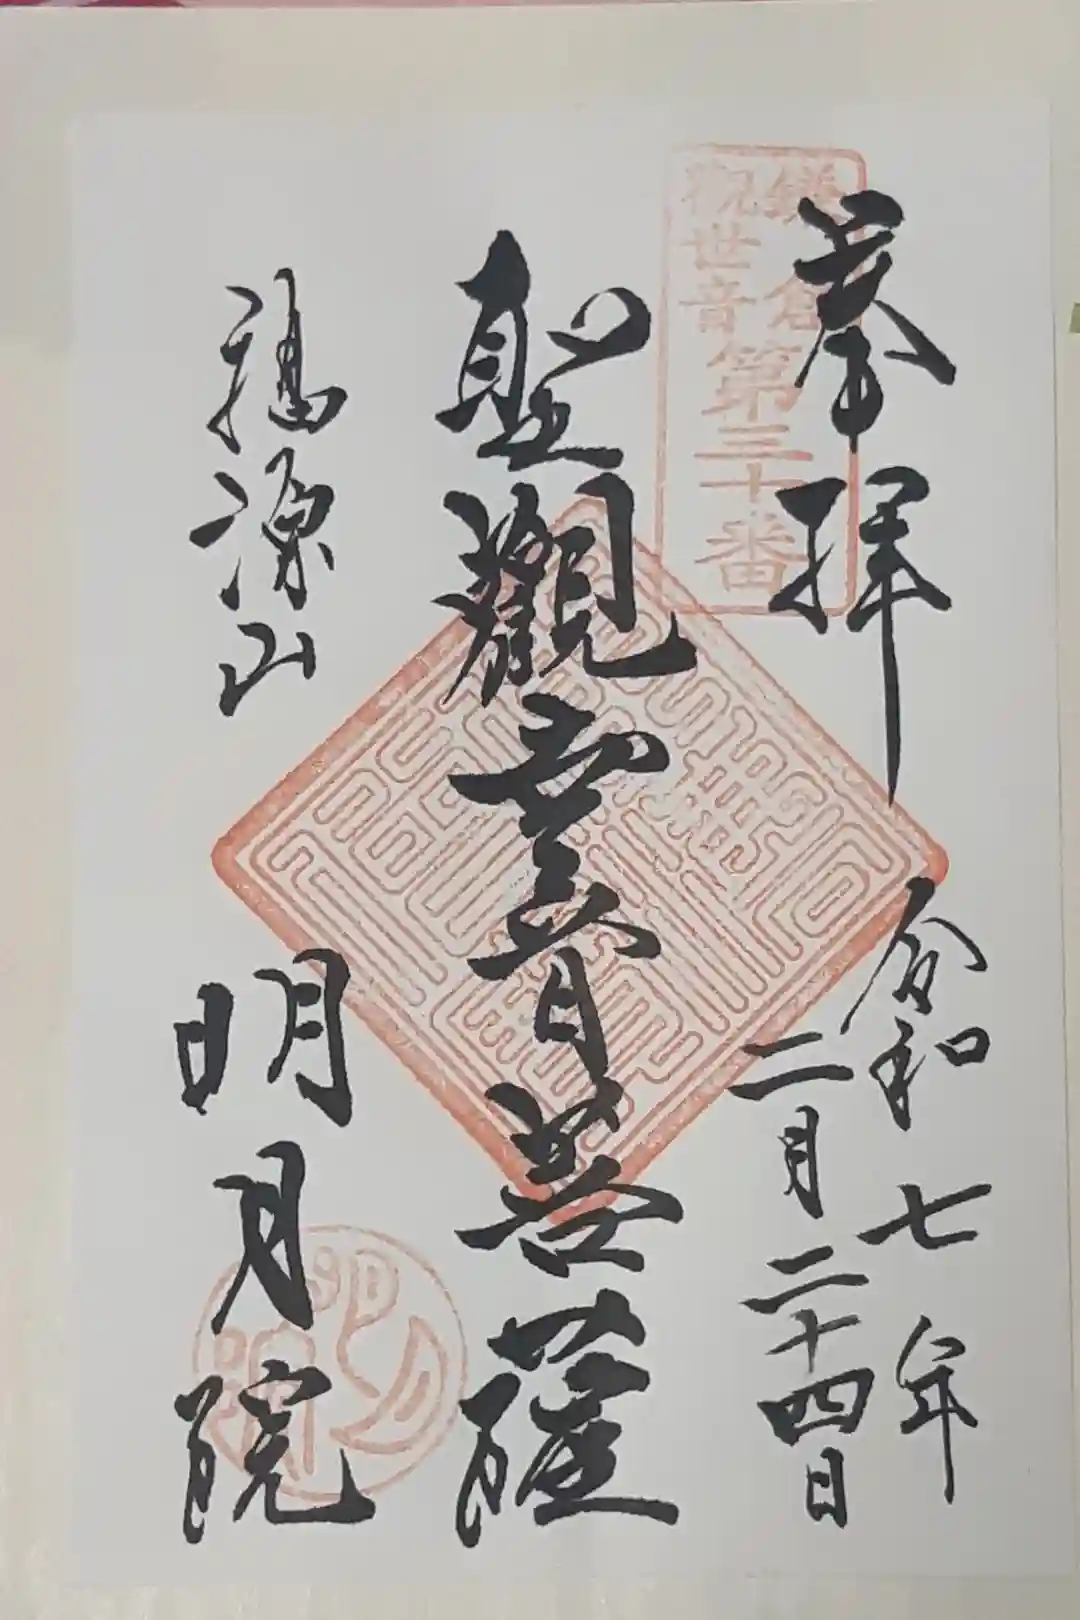 奉拝
令和七年
二月二十四日
鎌倉
觀世音
第三十番
聖觀世音菩薩
福源山
明月院